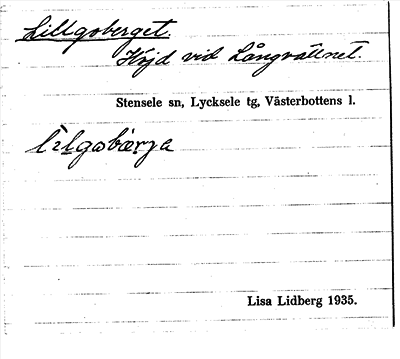 Lillgoberget.
Höjd vid Långvattnet.
Stensele sn, Lycksele tg, Västerbottens l.
Lisa Lidberg 1935.